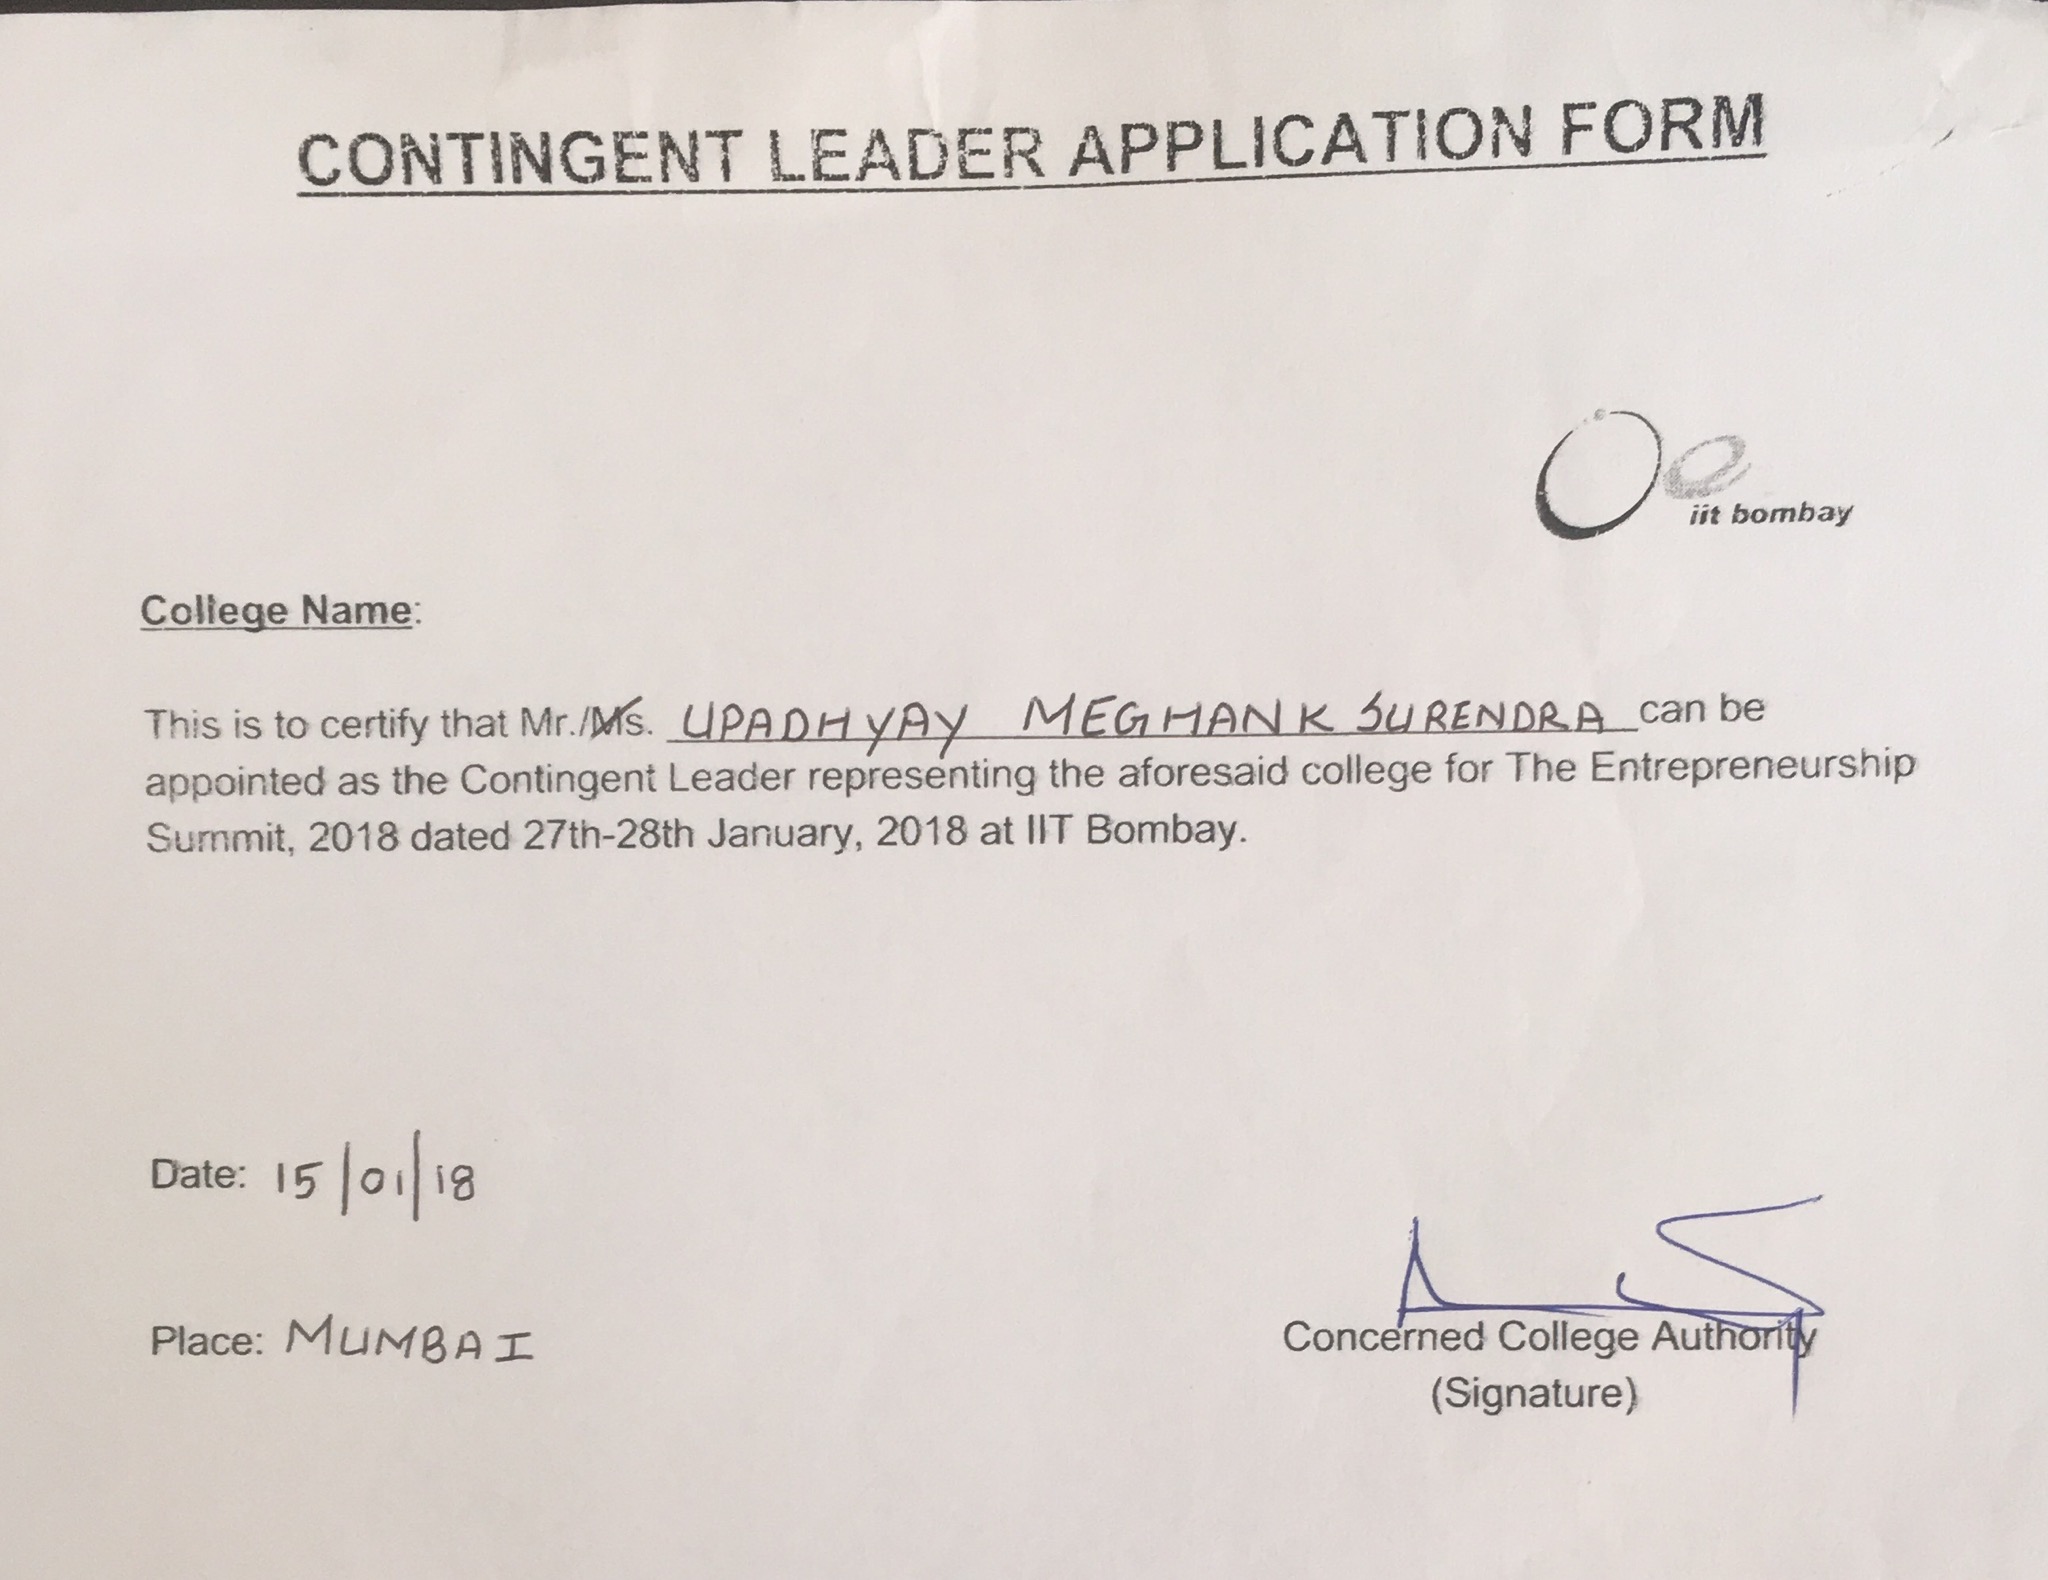 CONTINGENT LEADER APPLICATION FORM
iit bombay
College Name:
This is to certify that Mr./Ms. UPADHYAY MEGHANK SURENDRA can be
appointed as the Contingent Leader representing the aforesaid college for The Entrepreneurship
Summit, 2018 dated 27th-28th January, 2018 at IIT Bombay.
Date: 15/01/18
Place: MUMBAI
Concerned College Authority
(Signature)